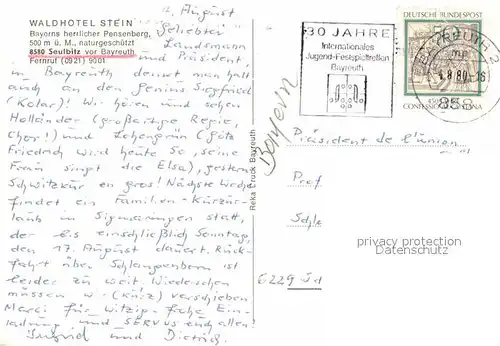 WALDHOTEL STEIN
Bayerns herrlicher Pensenberg,
500 m ü. M., naturgeschützt
8580 Seulbitz vor Bayreuth
Fernruf (0921) 9001
2. August
Geliebter
Landsmann
und Präsident,
in Bayreuth denkt man halt
auch an den Genius Siegfried
(Kolar)! Wir hören und sehen
Holländer (großartige Regie,
Chor!) und Lohengrin (Götz
Friedrich wird heute 50, seine
Frau singt die Elsa), gestern
Schwitzkür en gros! Nächste Woche
findet ein Familien-Kurzur-
laub in Sigmaringen statt,
der bis einschließlich Sonntag,
den 17. August dauert. Rück-
fahrt über Schlangenbern ist
leider zu weit. Wiedersehen
müssen wir (kurz) verschieben
Merci für witzig-frohe Ein-
ladung und SERVUS euch allen!
Ingrid und Dietrich.
Reka Druck Bayreuth
30 JAHRE
Internationales
Jugend-Festspieltreffen
Bayreuth
DEUTSCHE BUNDESPOST
BAYREUTH 2
858
CONFESSIO
Bayern
Président de l'union
Prof
Schle
6229
privacy protection
Datenschutz